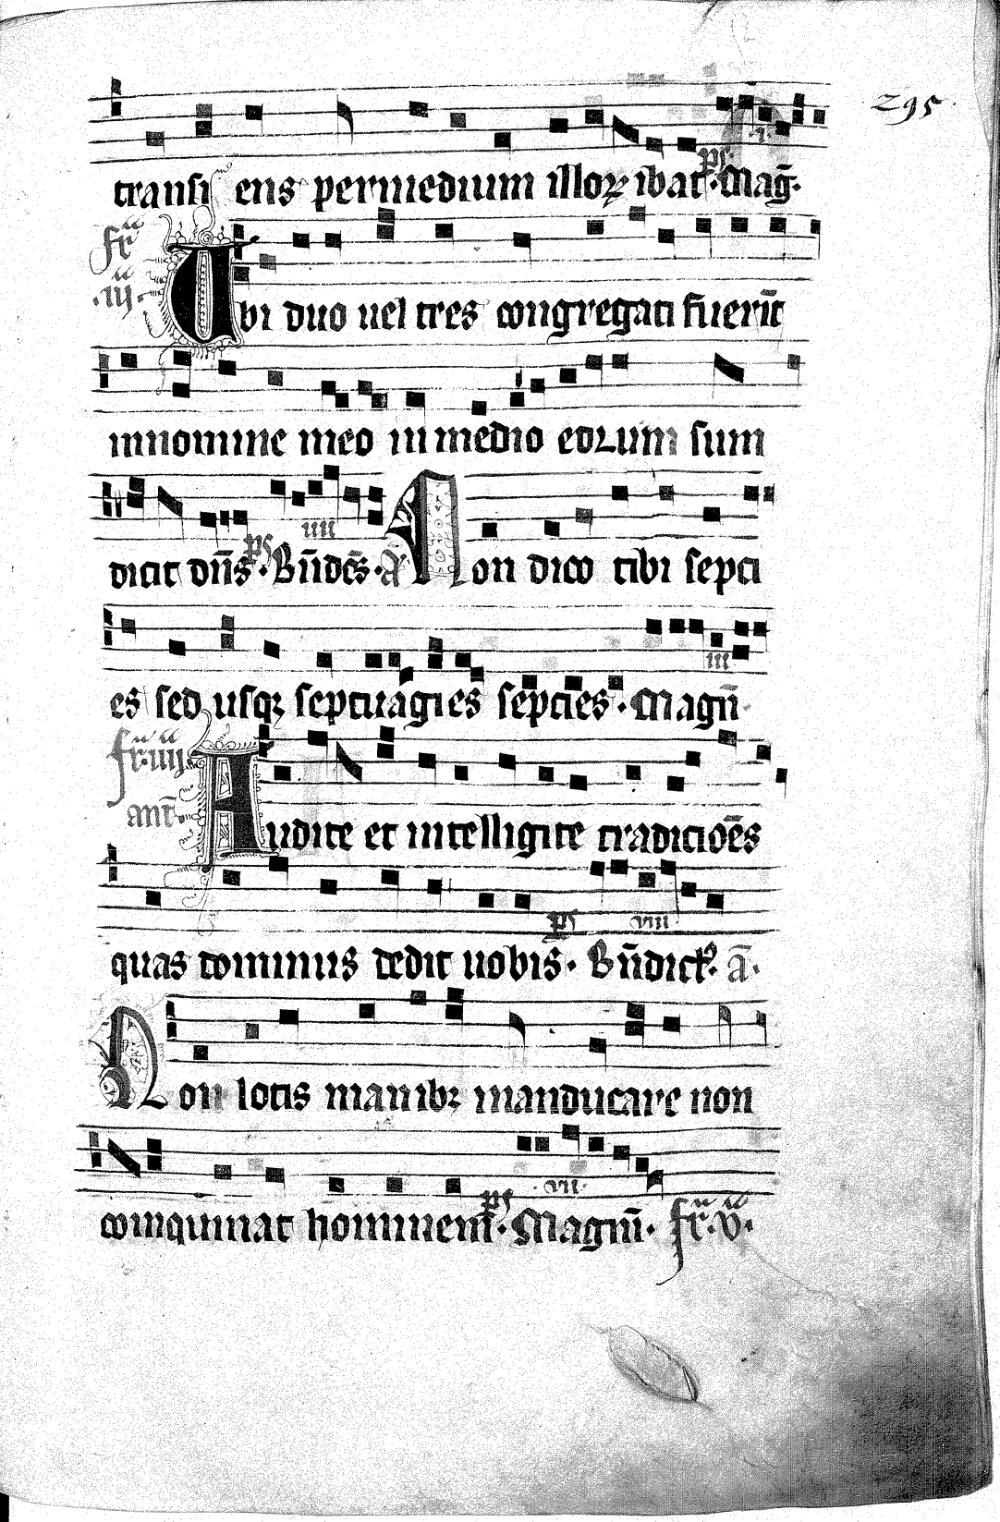 295
transiens permedium illoꝝ ibat · p̄s · Mag̃ · v
fr̃a iij Ubi duo uel tres congregati fueri̅t
innomine meo in medio eoꝝum sum
dicit dñs · p̄s · Bñdcs̃ · iiii A Non dico tibi septi
es sed usqꝫ septuagies septies · Magñ iii
fr̃a iiij ant̃ Audite et intelligite traditiões
quas dominus dedit uobis · p̄s Bñdict9 · viii ã ·
Non lotis manibꝫ manducare non
coinquinat hominem · p̄s · Magñ · vii fr̃a v ·